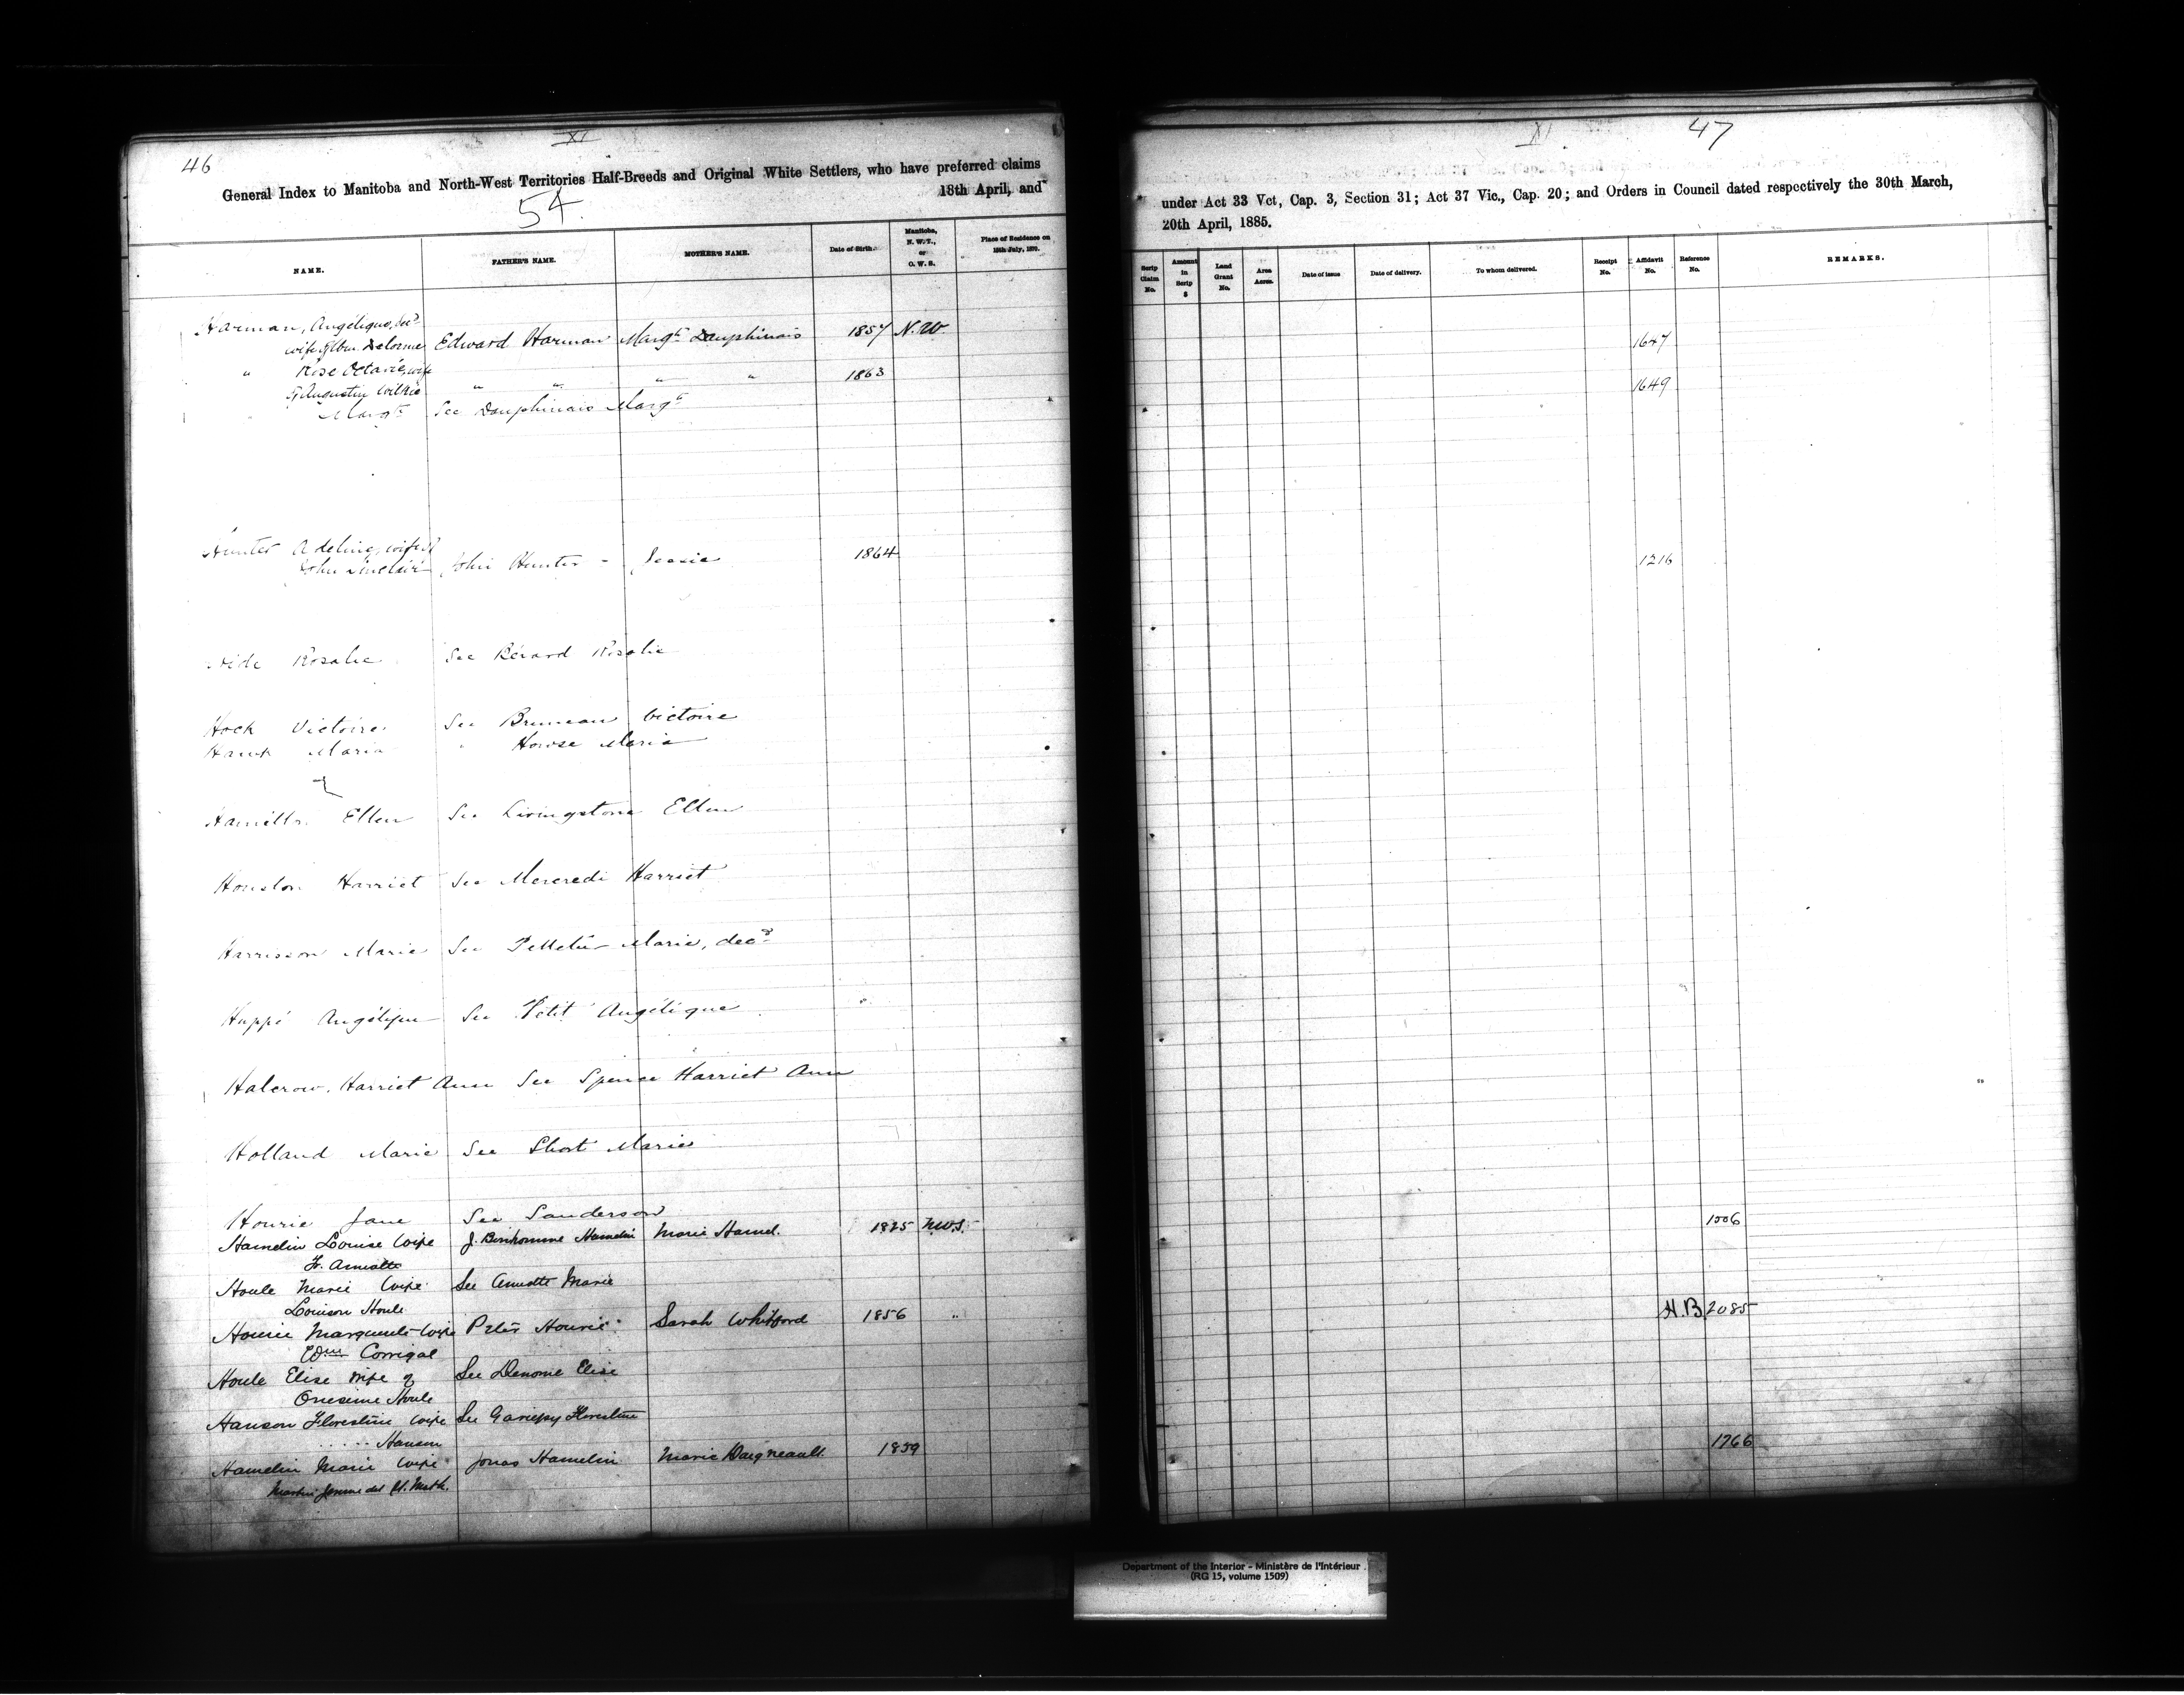 46
XI
General Index to Manitoba and North-West Territories Half-Breeds and Original White Settlers, who have preferred claims
18th April, and
54.
NAME. FATHER'S NAME. MOTHER'S NAME. Date of Birth. Manitoba, N. W. T., or O. W. S. Place of Residence on 15th July, 1870.
Harman, Angélique, decd
wife of Delorme Edward Harman Margt Dauphinais 1857 N.W.
" Rose Octavie, wife
of Augustin Wilkie " " " " 1863
" Margt See Dauphinais Margt
Hunter Adeline, wife of
John Sinclair John Hunter - Jessie 1864
Rosalie See Bérard Rosalie
Hock Victoire See Bruneau Victoire
Hawk Maria " Howse Maria
Hamilton Ellen See Livingstone Ellen
Houston Harriet See Mercredi Harriet
Harrisson Marie See Pelletier Marie, decd
Huppé Angélique See Petit Angélique
Halcrow, Harriet Ann See Spence Harriet Ann
Holland Marie See Short Marie
Hourie Jane See Sanderson
Hamelin Louise Wife J. Bonhomme Hamelin Marie Hamel. 1825 N.W.T.
Fr. Amiotte
Houle Marie Wife See Amiotte Marie
Louison Houle
Hourie Marguerite Wife Peter Hourie Sarah Whitford 1856 "
Wm Corrigal
Houle Elise Wife of See Denomé Elise
Onesime Houle
Hanson Florestine Wife See Gariepy Florestine
..... Hanson
Hamelin Marie Wife Jonas Hamelin Marie Daigneault. 1859
Martin Jerome dit St. Math.
XI
47
under Act 33 Vct, Cap. 3, Section 31; Act 37 Vic., Cap. 20; and Orders in Council dated respectively the 30th March,
20th April, 1885.
Scrip Claim No. Amount in Scrip $ Land Grant No. Area Acres. Date of issue Date of delivery. To whom delivered. Receipt No. Affidavit No. Reference No. REMARKS.
1647
1649
1216
1006
H.B. 2085
1766
Department of the Interior - Ministère de l'Intérieur
(RG 15, volume 1509)